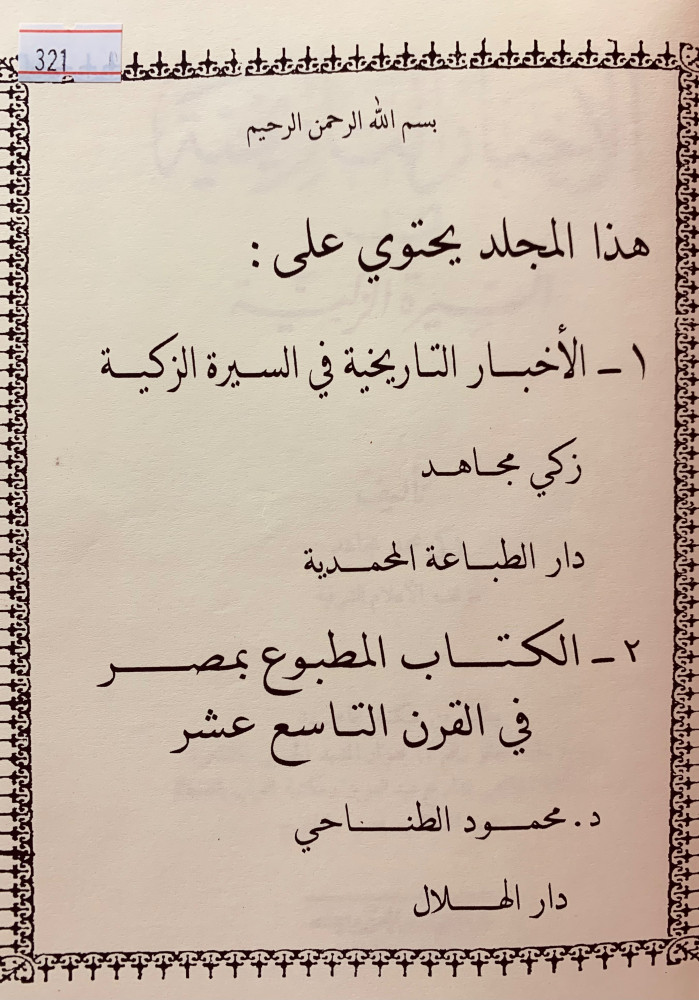 321
بسم الله الرحمن الرحيم
هذا المجلد يحتوي على :
١ - الأخبار التاريخية في السيرة الزكية
زكي مجاهد
دار الطباعة المحمدية
٢ - الكتاب المطبوع بمصر
في القرن التاسع عشر
د. محمود الطناحي
دار الهلال